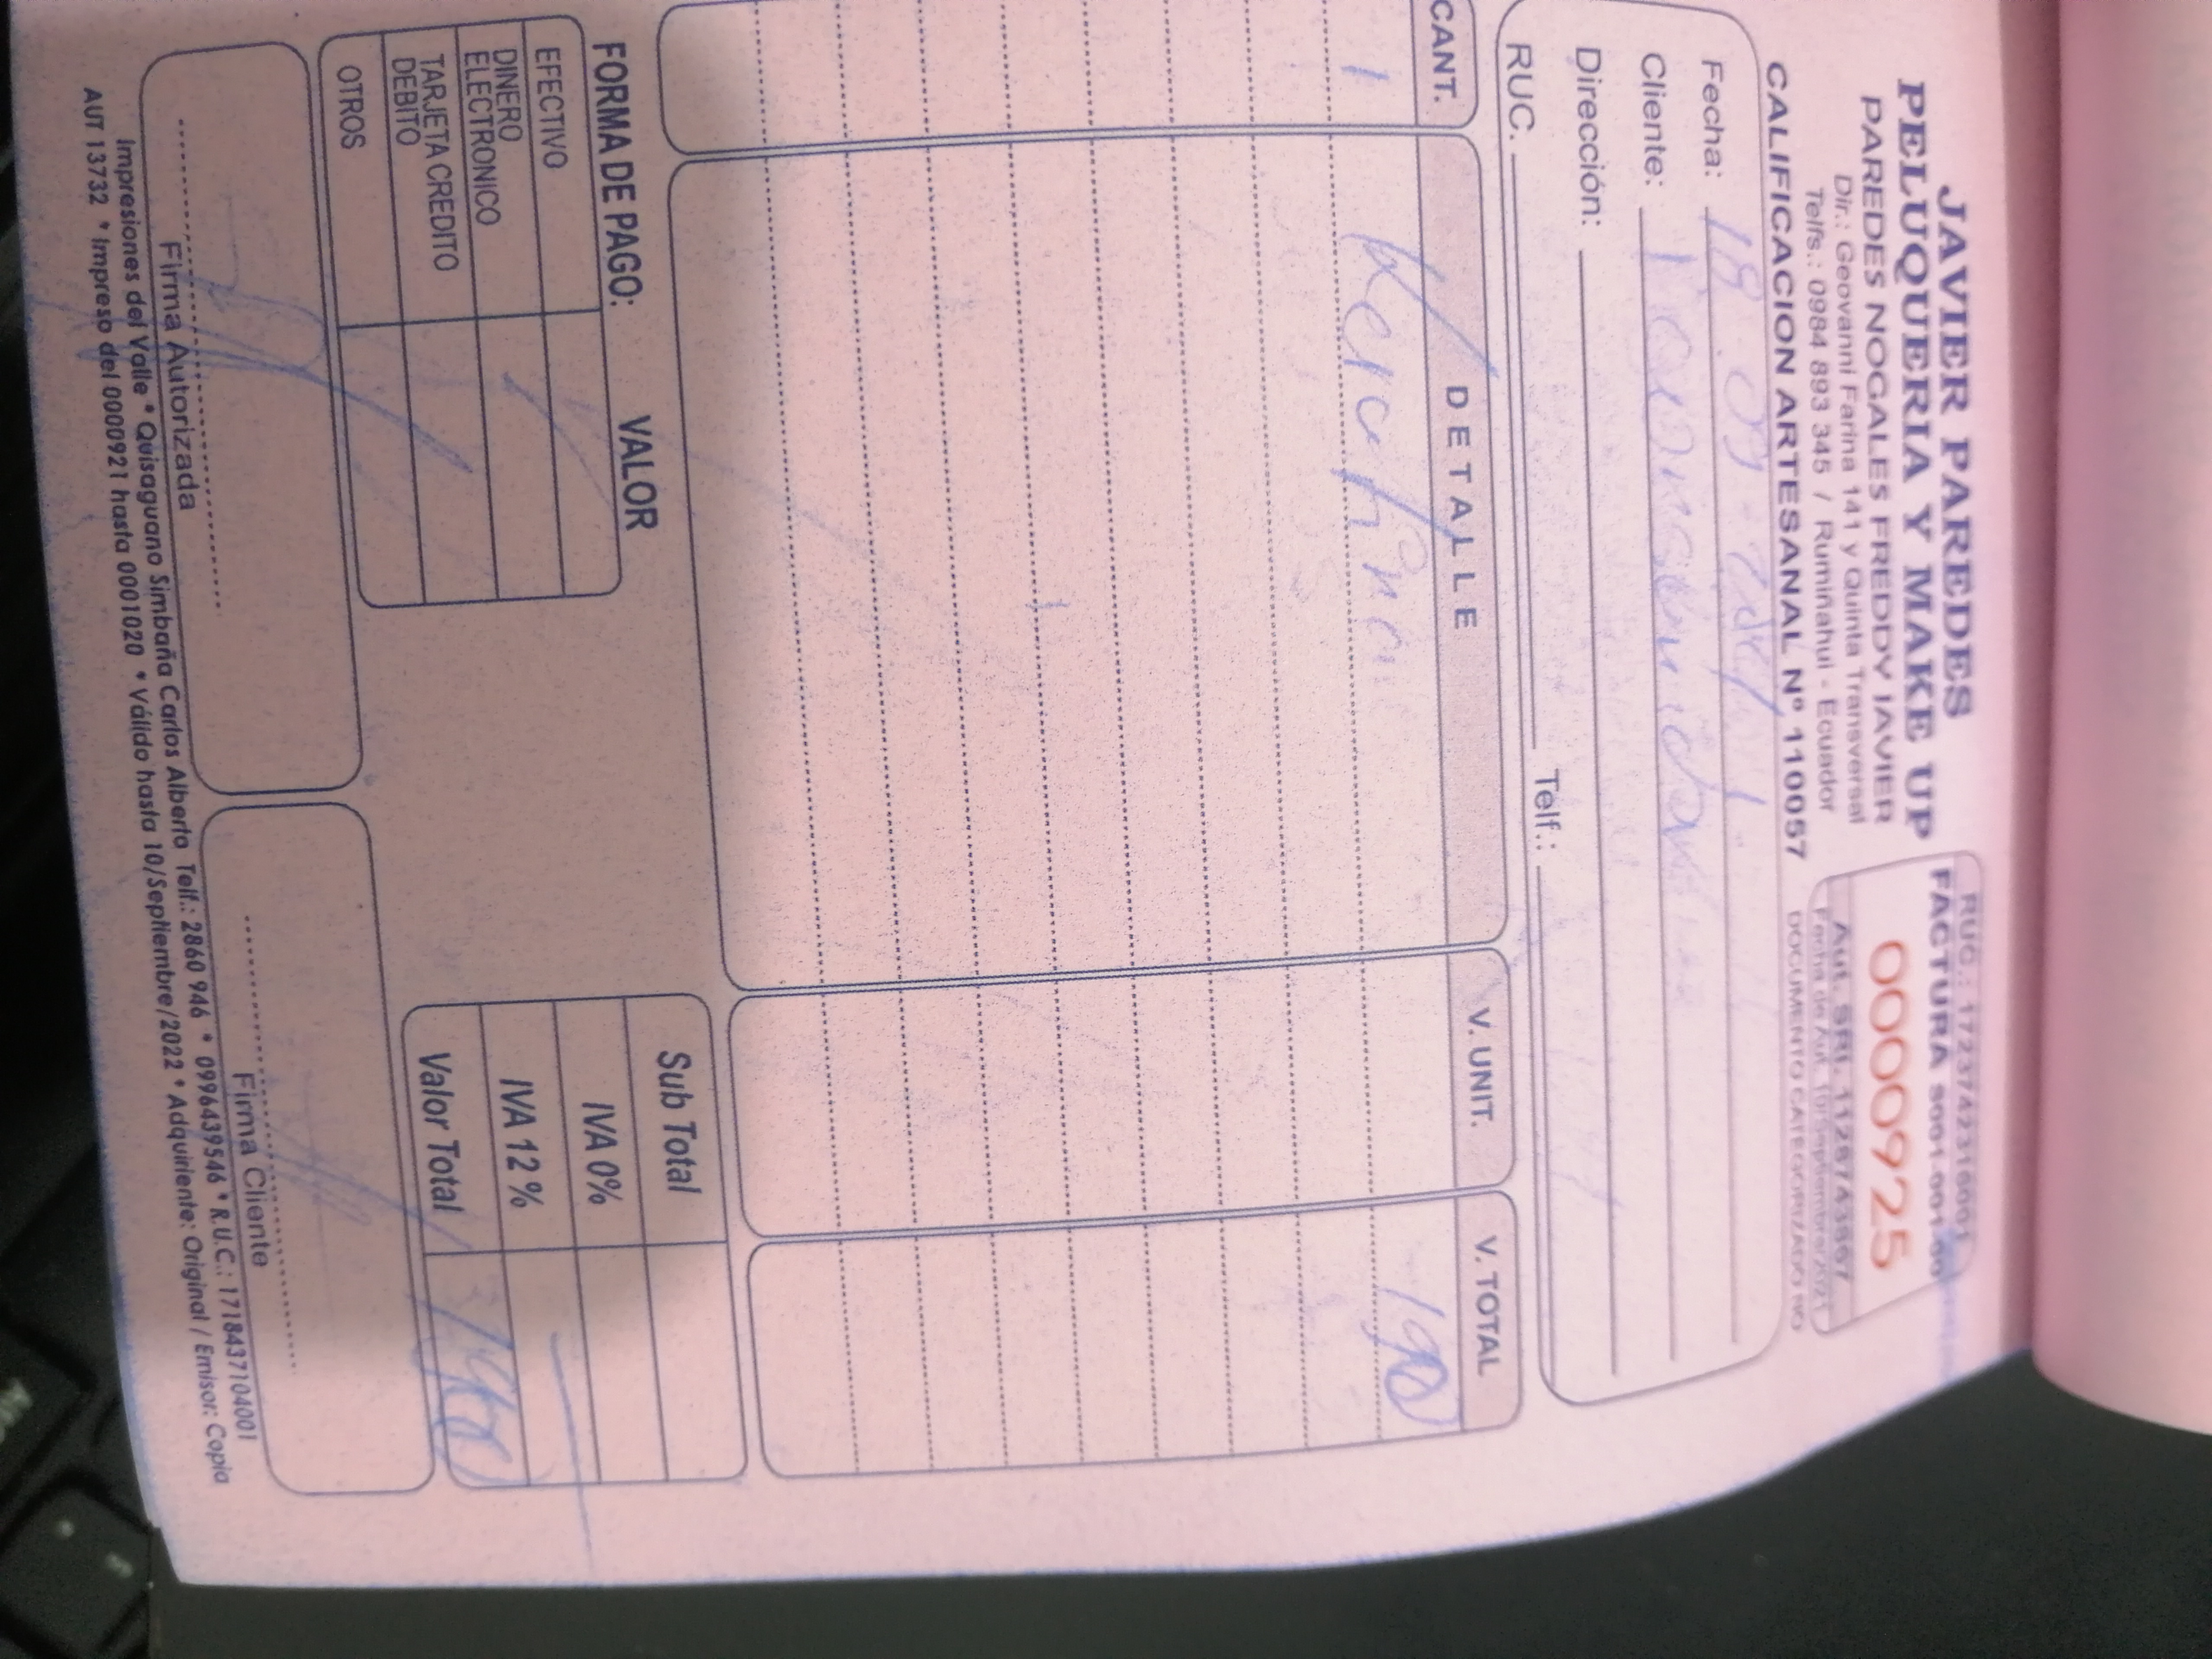 JAVIER PAREDES
PELUQUERIA Y MAKE UP
PAREDES NOGALES FREDDY JAVIER
Dir.: Geovanni Farina 141 y Quinta Transversal
Telfs.: 0984 893 345 / Rumiñahui - Ecuador
CALIFICACION ARTESANAL Nº 110057
RUC.: 1723742316001
FACTURA S001-001-00
0000925
Aut. SRI.
DOCUMENTO CATEGORIZADO NO
Fecha: 18
Cliente: Consumidor
Dirección:
RUC. Telf.:
CANT. DETALLE V. UNIT. V. TOTAL
1 Keratina 190
FORMA DE PAGO: VALOR
EFECTIVO
DINERO ELECTRONICO
TARJETA CREDITO DEBITO
OTROS
Sub Total
IVA 0%
IVA 12 %
Valor Total 190
Firma Autorizada
Firma Cliente
Impresiones del Valle * Quisaguano Simbaña Carlos Alberto Telf.: 2860 946 * 0996439546 * R.U.C.: 1718437104001
AUT 13732 * Impreso del 0000921 hasta 0001020 * Válido hasta 10/Septiembre/2022 * Adquiriente: Original / Emisor: Copia